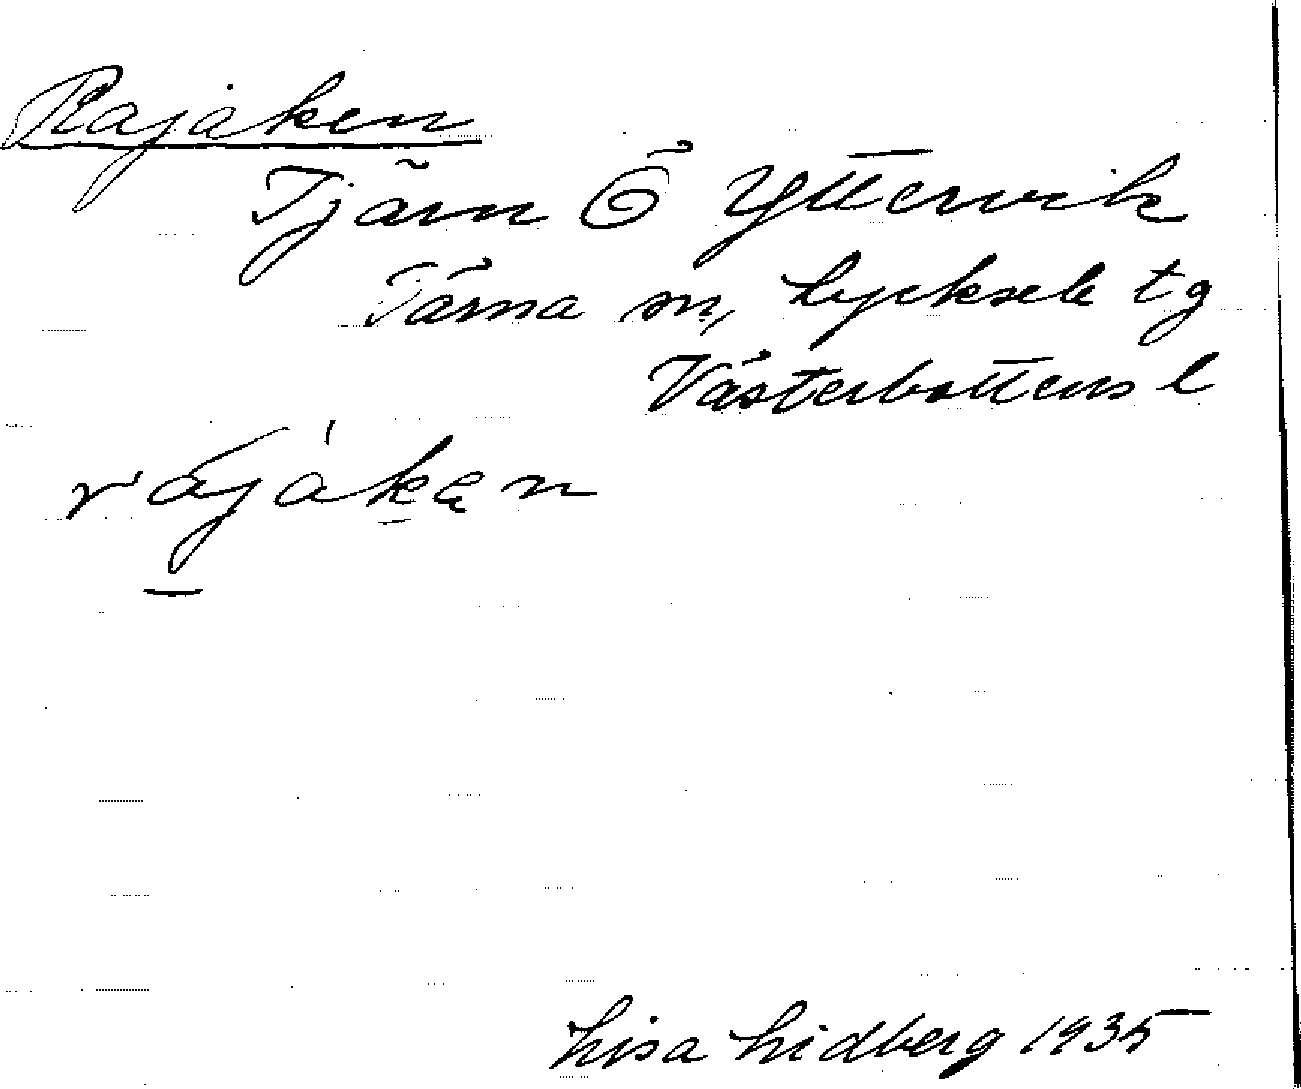 Rajaken
Tjärn Ö Yttervik
Tärna sn, Lycksele tg
Västerbottens l
rájákęn
Lisa Lidberg 1935